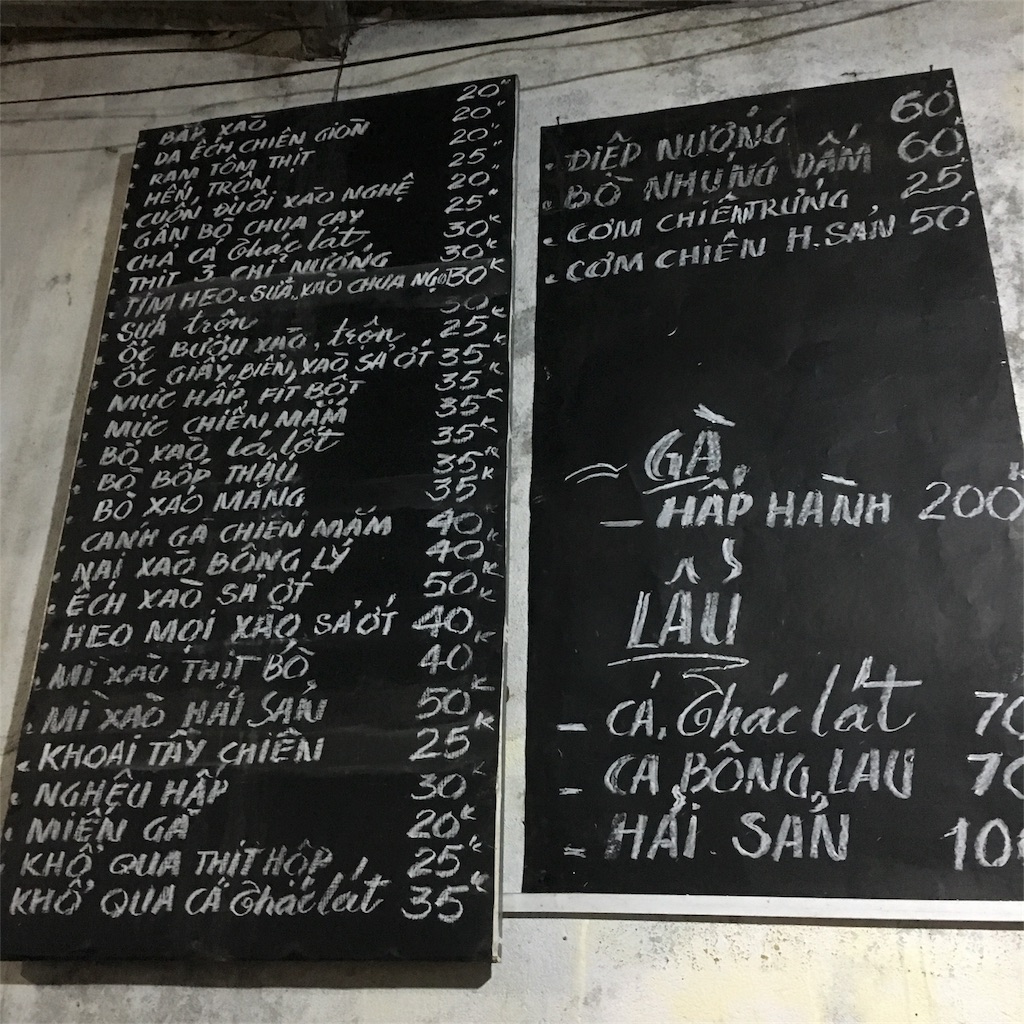 BẮP XÀO 20K
DA ẾCH CHIÊN GIÒN 20
RAM TÔM THỊT 20
HẾN TRỘN 25
CUỐN ĐUÔI XÀO NGHỆ 20
GÂN BÒ CHUA CAY 25
CHẢ CÁ Thác lát 30K
THỊT 3 CHỈ NƯỚNG 30K
TIM HEO - SỤA XÀO CHUA NGỌ 30K
SỨA trộn 30
ỐC BƯƠU XÀO, trộn 25K
ỐC GIẤY, BIỂN, XÀO SẢ ỚT 35K
MỰC HẤP, FIT BỘT 35K
MỰC CHIÊN MẮM 35K
BÒ XÀO lá lốt 35K
BÒ BÓP THẤU 35K
BÒ XÀO MĂNG 35
CÁNH GÀ CHIÊN MẮM 40K
NAI XÀO BÔNG LÝ 40K
ẾCH XÀO SẢ ỚT 50K
HEO MỌI XÀO SẢ ỚT 40K
MÌ XÀO THỊT BÒ 40
MÌ XÀO HẢI SẢN 50K
KHOAI TÂY CHIÊN 25K
NGHÊU HẤP 30
MIẾN GÀ 20K
KHỔ QUA THỊT HỘP 25K
KHỔ QUA CÁ Thác lát 35K
ĐIỆP NƯỚNG 60
BÒ NHÚNG DẤM 60
CƠM CHIÊN TRỨNG 25
CƠM CHIÊN H. SẢN 50
GÀ
- HẤP HÀNH 200K
LẨU
- CÁ Thác lát 70
- CÁ BÔNG LAU 70
- HẢI SẢN 100